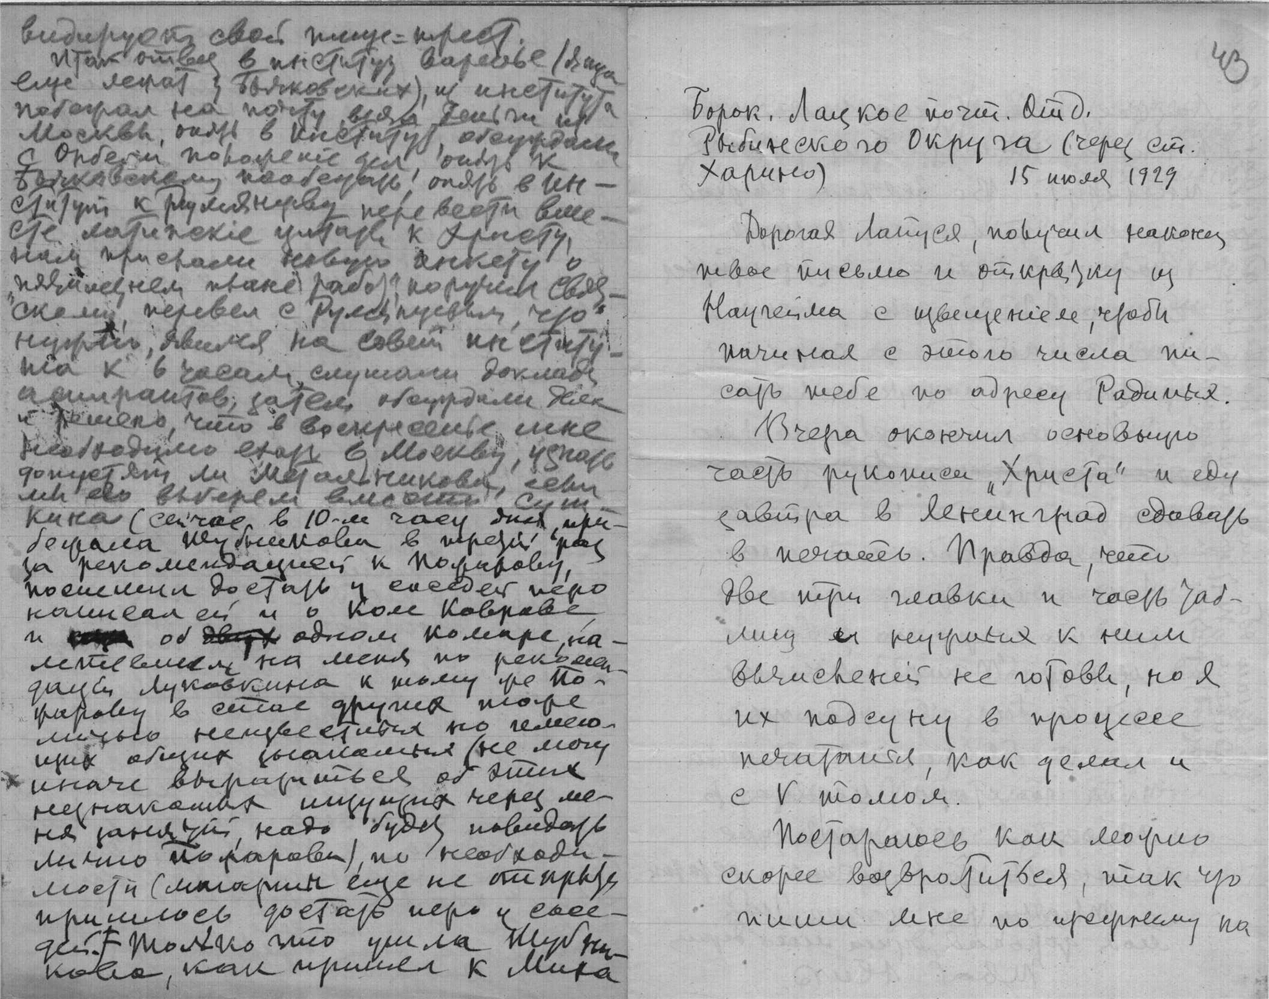 видирует свой пище-трест.
Итак отвез в институт варенье (яйца
еще лежат у Бычковских), из института
побежал на почту, взял деньги из
Москвы, опять в институт, обсуждали
с Орбели положение дел, опять к
пообедать, опять в ин-
ститут к Румянцеву перевести вме-
сте латинские цитаты к Христу,
нам прислали новую анкету о
"пятилетнем плане работ", поручили
скому, перевел с Румянцевым, что
нужно, явился на совет институ-
та к 6 часам, слушали доклады
аспирантов, затем обсуждали
и решено, что в воскресенье мне
необходимо ехать в Москву, узнать
допустят ли Метальникова, если
мы его выберем вместо
кина (сейчас в 10-м часу дня при-
бежала Шубникова в третий раз
за рекомендацией к
поспешил достать у соседей перо
написал ей и о Коле Коврове
и об одном комаре, на-
летевшем на меня по рекомен-
дации Луковкина к тому же По-
в стае других тоже
лично неизвестных но имею-
щих общих знакомых (не могу
иначе выразиться об этих
незнакомых ищущих через ме-
ня занятий, надо будет повидать
лично), по необходи-
мости (магазин еще не открыт)
пришлось достать перо у сосе-
дей. Только что ушла Шубни-
кова, как пришел к Миха
43
Борок. Лацкое почт. Отд.
Рыбинского Округа (через ст.
Харино) 15 июля 1929
Дорогая Лапуся, получил наконец
твое письмо и открытку из
Наугейма с извещением, чтоби
начиная с этого числа пи-
сать тебе по адресу Радиных.
Вчера окончил основную
часть рукописи „Христа" и еду
завтра в Ленинград сдавать
в печать. Правда, что
две три главки и часть таб-
лиц и нужных к ним
вычислений не готовы, но я
их подсуну в процессе
печатания, как делал и
с V томом.
Постараюсь как можно
скорее возвратиться, так что
пиши мне по прежнему на